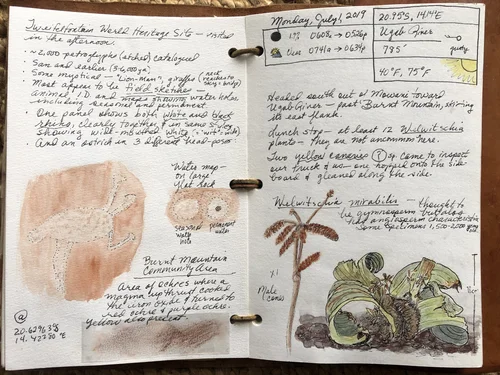 Twyfelfontein World Heritage Site - visited
in the afternoon.
• ~2,000 petroglyphs (etched) catalogued
• San and earlier (3-6,000 ya)
• Some mystical - "Lion-man", giraffes (neck
reaches to sky - bridge)
• Most appear to be field sketches -
animal I.D. and maps showing water holes
including seasonal and permanent.
• One panel shows both white and black
rhino, clearly together, & in same style
showing wide-mouthed white (= "wide")
• And an ostrich in 3 different head-poses
Water map -
on large
flat rock
seasonal
water
hole
permanent
water
Burnt Mountain
Community Area
Area of ochres where a
magma upthrust cooked
the iron oxide & turned to
red ochre & purple ochre.
Yellow also present
@
20.62963°S
14.42730°E
Monday, July 1, 2019
1% 0608a → 0526p
Sun 0741a → 0634p
20.95°S, 14.14°E
Ugab River
795'
gusty
40°F, 75°F
Headed south out of Mowani toward
Ugab River - past Burnt Mountain, skirting
its east flank.
Lunch stop - at least 12 Welwitschia
plants - they are not uncommon here.
Two yellow canaries (?) come to inspect
our truck & us - one hopped onto the side
board & gleaned along the side.
Welwitschia mirabilis - thought to
be gymnosperm but also
had angiosperm characteristics
Some specimens 1,500-2,000 years
old
Male
cones